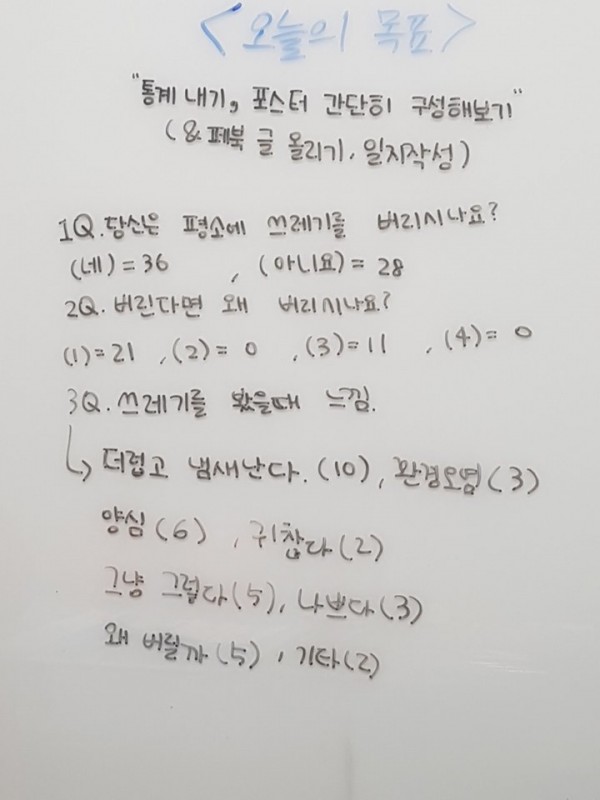 <오늘의 목표>
"통계 내기, 포스터 간단히 구성해보기"
(& 페북 글 올리기, 일지작성)
1Q. 당신은 평소에 쓰레기를 버리시나요?
(네) = 36 , (아니요) = 28
2Q. 버린다면 왜 버리시나요?
(1)=21 ,(2)= 0 ,(3)=11 ,(4)= 0
3Q. 쓰레기를 봤을때 느낌.
↳ 더럽고 냄새난다.(10), 환경오염(3)
양심(6) , 귀찮다(2)
그냥 그렇다(5), 나쁘다(3)
왜 버릴까(5) , 기타(2)